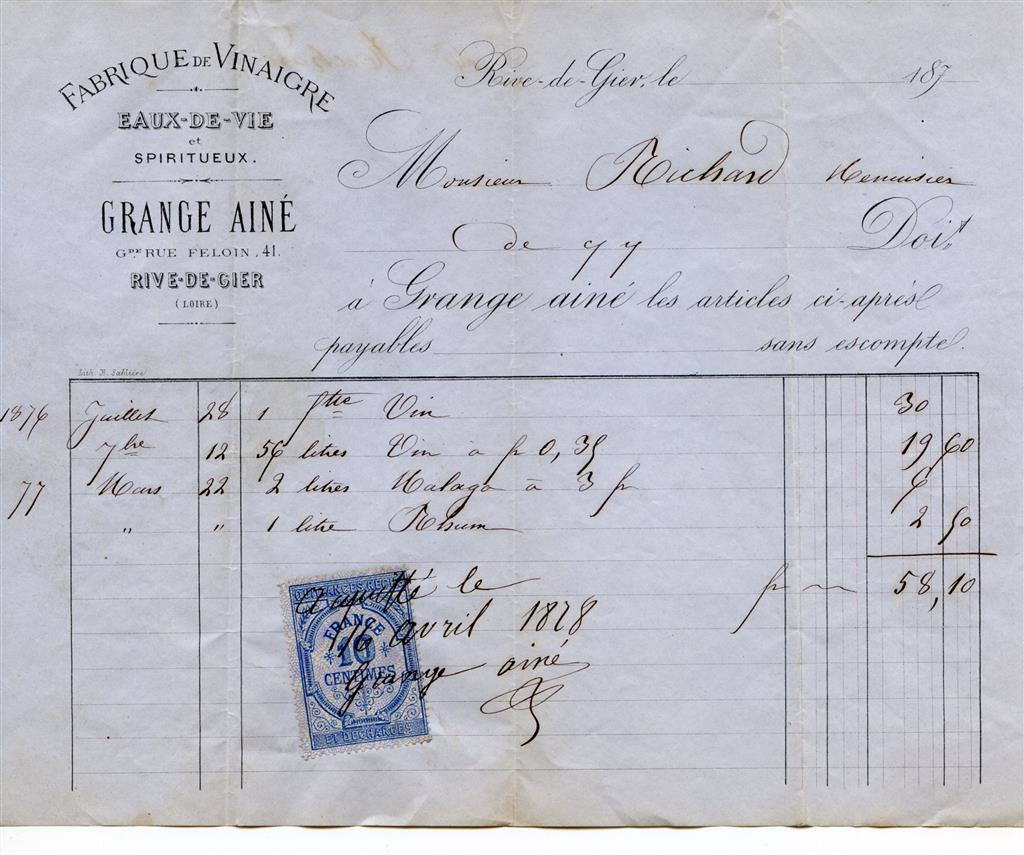 FABRIQUE DE VINAIGRE
EAUX-DE-VIE
et
SPIRITUEUX.
GRANGE AINÉ
GDE RUE FELOIN, 41.
RIVE-DE-GIER
(LOIRE)
Rive-de-Gier, le 187
Monsieur Richard Menuisier
de 
Doit
à Grange ainé les articles ci-après
payables sans escompte.
Lith. R. Sablière
1876 Juillet 28 1 Vin 30
7bre 12 56 litres Vin à fr 0,35 19 60
77 Mars 22 2 litres Malaga à 3 fr 6
" " 1 litre Rhum 2 50
fr 58,10
QUITTANCES REÇUS
FRANCE
10
CENTIMES
ET DÉCHARGES
Acquitté le
16 avril 1878
Grange ainé